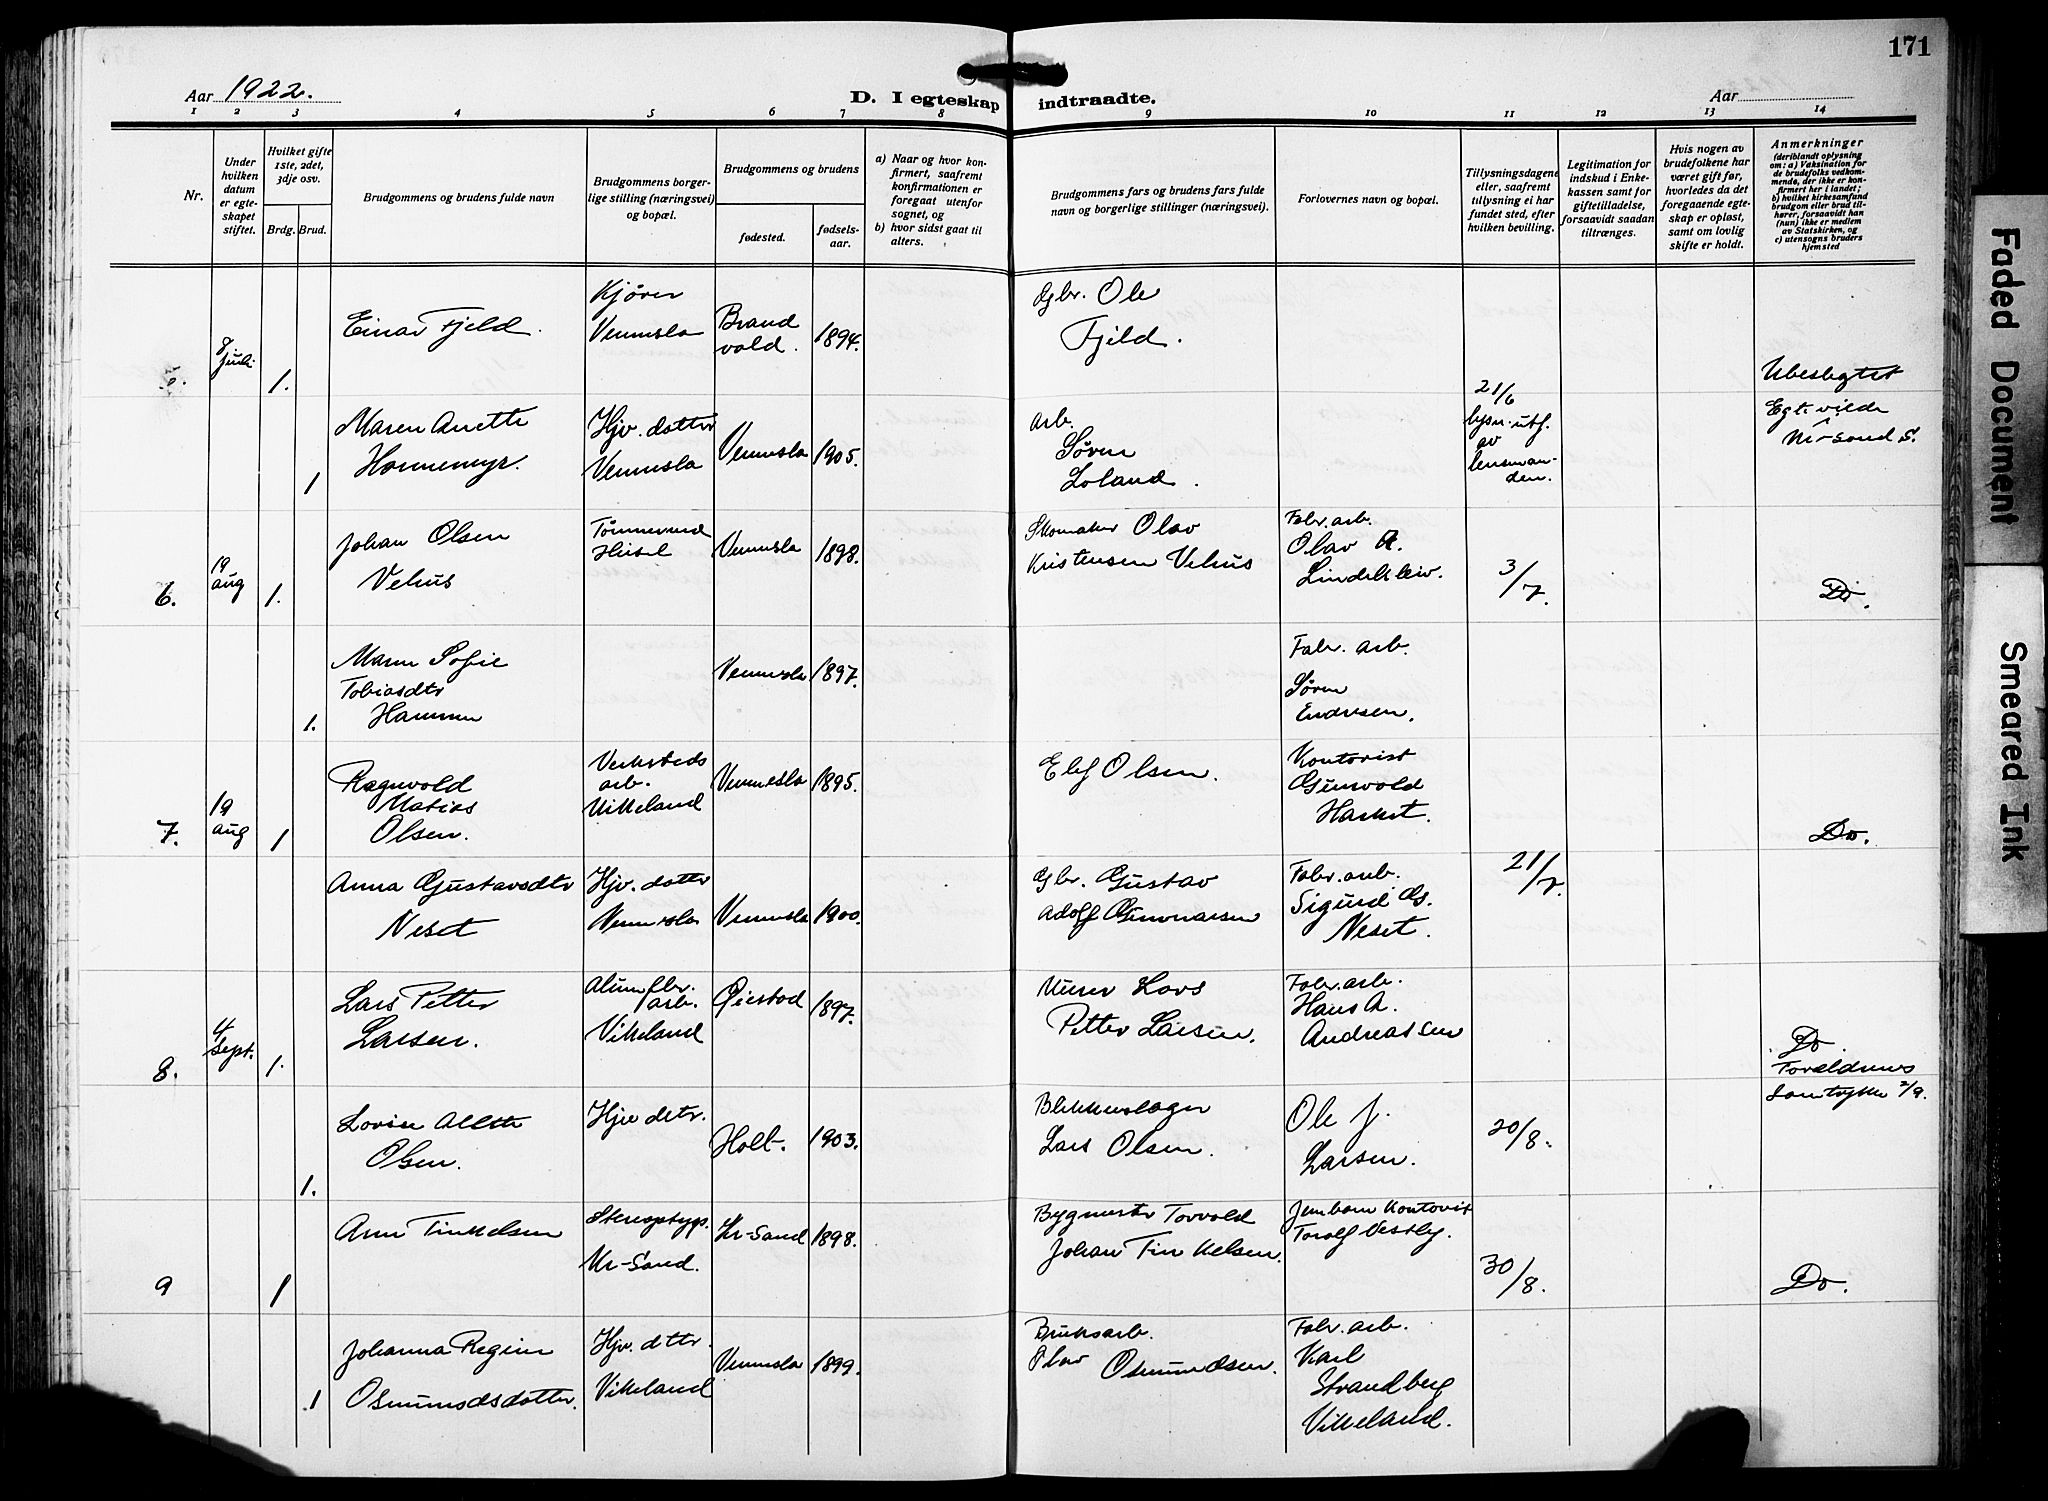 171
Aar 1922.
D. I egteskap indtraadte.
Aar
1 2 3 4 5 6 7 8 9 10 11 12 13 14
Nr.
Under
hvilken
datum
er egte-
skapet
stiftet.
Hvilket gifte
1ste, 2det,
3dje osv.
Brdg.
Brud.
Brudgommens og brudens fulde navn
Brudgommens borger-
lige stilling (næringsvei)
og bopæl.
Brudgommens og brudens
fødested.
fødsels-
aar.
a) Naar og hvor kon-
firmert, saafremt
konfirmationen er
foregaat utenfor
sognet, og
b) hvor sidst gaat til
alters.
Brudgommens fars og brudens fars fulde
navn og borgerlige stillinger (næringsvei).
Forlovernes navn og bopæl.
Tillysningsdagene
eller, saafremt
tillysning ei har
fundet sted, efter
hvilken bevilling.
Legitimation for
indskud i Enke-
kassen samt for
giftetilladelse,
forsaavidt saadan
tiltrænges.
Hvis nogen av
brudefolkene har
været gift før,
hvorledes da det
foregaaende egte-
skap er opløst,
samt om lovlig
skifte er holdt.
Anmerkninger
(deriblandt oplysning
om: a) Vaksination for
de brudefolks vedkom-
mende, der ikke er kon-
firmert her i landet;
b) hvilket kirkesamfund
brudgom eller brud til-
hører, forsaavidt han
(hun) ikke er medlem
av Statskirken, og
c) utensogns bruders
hjemsted
5.
8
juli
1.
Einar Fjeld.
Kjører
Vennsla
Brand
vold.
1894.
Gbr. Ole
Fjeld.
Ubeslegtet
1
Maren Anette
Hommemyr.
Hjv. datter
Vennsla
Vennsla
1905.
arb.
Søren
Loland.
21/6
lysn. utf.
av
lensman-
den.
Egt. vilde
Kr-sand S.
6.
19
aug
1.
Johan Olsen
Vehus
Tømmermd
Heisel
Vennsla
1898.
Skomaker Olav
Kristensen Vehus
Fabr. arb.
Olav A.
Lindekleiv.
3/7.
Do.
1.
Maren Sofie
Tobiasdtr
Hammen
Vennsla
1897.
Fabr. arb.
Søren
Endresen.
7.
19
aug
1
Ragnvald
Matias
Olsen.
Verksteds
arb.
Vikeland
Vennesla
1895.
Elef Olsen.
Kontorist
Gunvald
Harket.
Do.
Anna Gustavsdtr
Neset
Hjv. datter
Vennesla
Vennsla
1900.
Gbr. Gustav
Adolf Gunnarsen
Fabr. arb.
Sigurd Gs.
Neset.
21/7.
8.
4
sept.
1.
Lars Petter
Larsen.
Alum fbr.
arb.
Vikeland
Øiestad
1897.
Murer Lars
Petter Larsen.
Fabr. arb.
Hans A.
Andreassen
Do.
Foreldrenes
samtykke 2/9.
1.
Lovise Alette
Olsen.
Hjv dtr.
Holt.
1903.
Blikkenslager
Lars Olsen.
Ole J.
Larsen.
20/8.
9
1
Arne Tinkelsen
Stereotyp.
Kr-Sand.
Kr-Sand
1898.
Bygmester Torvald
Johan Tinkelsen.
Jernban Kontorist
Toralf Vestby.
30/8.
Do.
1
Johanna Regine
Osmundsdatter.
Hjv. dtter.
Vikeland
Vennsla
1899.
Bruksarb.
Olav
Osmundsen.
Fabr. arb.
Karl
Strandberg
Vikeland.
Faded Document
Smeared Ink